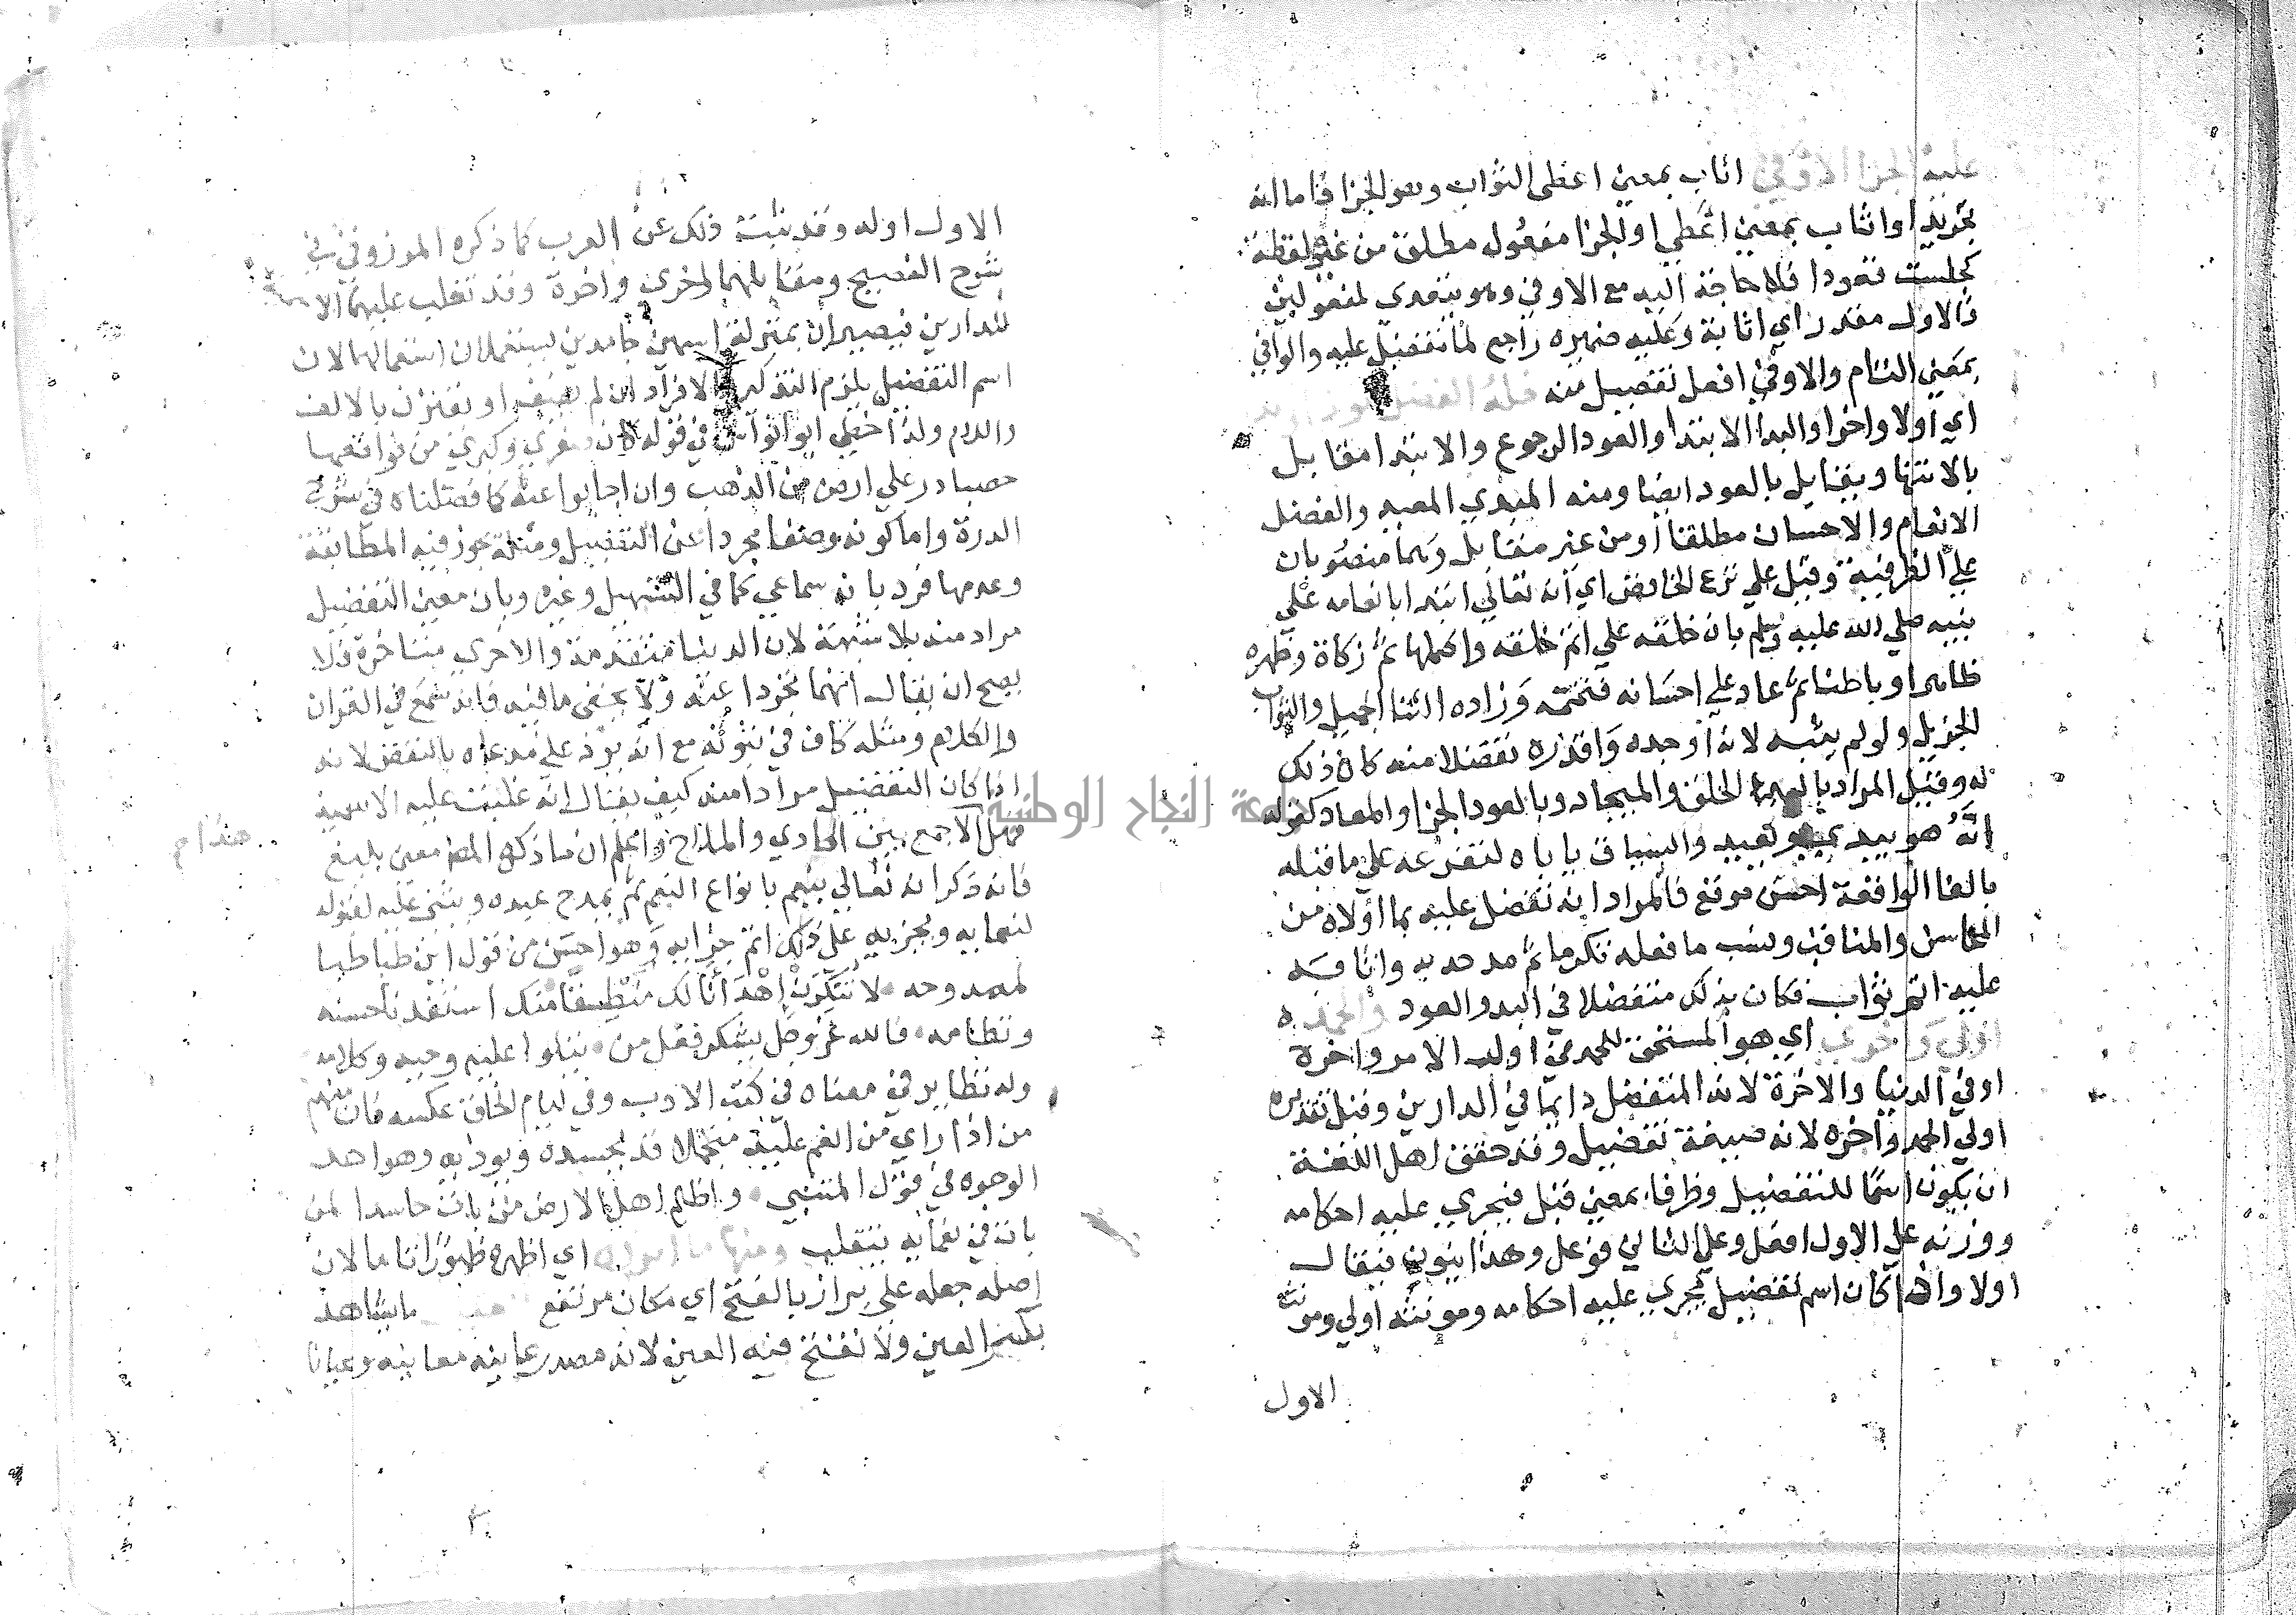 عليه الجزا الاوفى اثاب بمعنى اعطى الثواب وهو الجزا فاما انه
تجريد او اثاب بمعنى اعطي او للجزا مفعول مطلق من غير لفظه
كجلست قعودا فلا حاجة اليه مع الاوفي وهو يتعدي لمفعولين
فالاول مقدر اي اثابة وعليه ضميره راجع لما تفضل عليه والوافي
بمعنى التام والاوفى افعل تفضيل منه فله الفضل
اي اولا واخرا والبدا الابتدا والعود الرجوع والابتدا مقابل
بالانتها ويقابل بالعود ايضا ومنه المبدي المعيد والفضل
الانعام والاحسان مطلقا او من غير مقابل وهما منصوبان
على الظرفية وقيل علي نزع الخافض اي انه تعالي ابتدا بانعامه علي
نبيه صلي الله عليه وسلم بان خلقه علي اتم خلقه واكملها ثم زكاة وطهره
ظاهرا وباطنا ثم عاد علي احسانه فتممه وزاده الثنا الجميل والثواب
الجزيل ولو لم يثبه لانه اوجده واقدره تفضلا منه كان ذلك
له وقيل المراد بالبدء الخلق والايجاد وبالعود الجزا والمعاد كقوله
انه هو يبدي ويعيد والسياق ياباه لتفرعه علي ما قبله
بالفا الواقعة احسن موقع فالمراد انه تفضل عليه بما اولاه من
المحاسن والمناقب ونسب ما فعله تكرما ثم مدحه به واثابه
عليه اتم ثواب فكان بذلك متفضلا في البدو والعود والحمد
اولي واخري اي هو المستحق للحمد في اول الامر واخرة
او في الدنيا والاخرة لانه المتفضل دايما في الدارين وقيل تقديره
اولي الحمد واخره لانه صيغة تفضيل وقد حقق اهل اللغة
ان يكون اسما للتفضيل وظرفا بمعنى قبل فيجري عليه احكامه
ووزنه على الاول افعل وعلى الثاني فوعل وهذا ينون فيقال
اولا واذا كان اسم تفضيل يجري عليه احكامه ومونثه اولي ومونث
الاول
الاول اوله وقد ثبت ذلك عن العرب كما ذكره المرزوقي في
شرح الفصيح ومقابلهما اخري واخرة وقد تغلب عليهما الاسمية
للدارين فيصيران بمنزلة اسمين جامدين يستعملان استعمالها لان
اسم التفضيل يلزم التذكير والافراد ان لم يضف او يقترن بالالف
واللام ولذا خطي ابو انواس في قوله كان صغري وكبري من فواقعها
حصباء در علي ارض من الذهب وان اجابوا عنه كما فصلناه في شرح
الدرة واما كونه وصفا مجردا عن التفضيل ومثله يجوز فيه المطابقة
وعدمها فرد بانه سماعي كما في التسهيل وغيره وبان معنى التفضيل
مراد منه بلا شبهة لان الدنيا متقدمة والاخري متاخرة فلا
يصح ان يقال انهما تجردا عنه ولا يخفى ما فيه فانه سمع في القران
والكلام ومثله كاف في ثبوته مع انه يرد علي مدعاه بالنقض لانه
اذا كان التفضيل مرادا منه كيف يقال انه غلبت عليه الاسمية
فهل الا جمع بين الحادي والملاح واعلم ان ما ذكره المص معنى بليغ
هذا م
فانه ذكر انه تعالي ينعم بانواع النعم ثم يمدح عبده ويثني عليه لقبوله
لنعمايه ويجزيه على ذلك اتم جزايه وهو احسن من قول ابن طباطبا
لممدوحه لا تنكرن اهداءنا لك منطقا منك استفدنا حسنه
ونظامه فالله عز وجل يشكر فعل من يتلوا عليه وحيه وكلامه
وله نظاير في معناه في كتب الادب وفي ليام الخلق عكسه فان منهم
من اذا راي من انعم عليه متجملا قد يحسده ويوذيه وهو احد
الوجوه في قول المتنبي واظلم اهل الارض من بات حاسدا لمن
بات في نعمايه يتقلب اي اظهره ظهورا تاما لان
اصله جعله على براز بالفتح اي مكان مرتفع ما يشاهد
بكسر العين ولا تفتح فيه العين لانه مصدر عاينه معاينه وعيانا
جامعة النجاح الوطنية